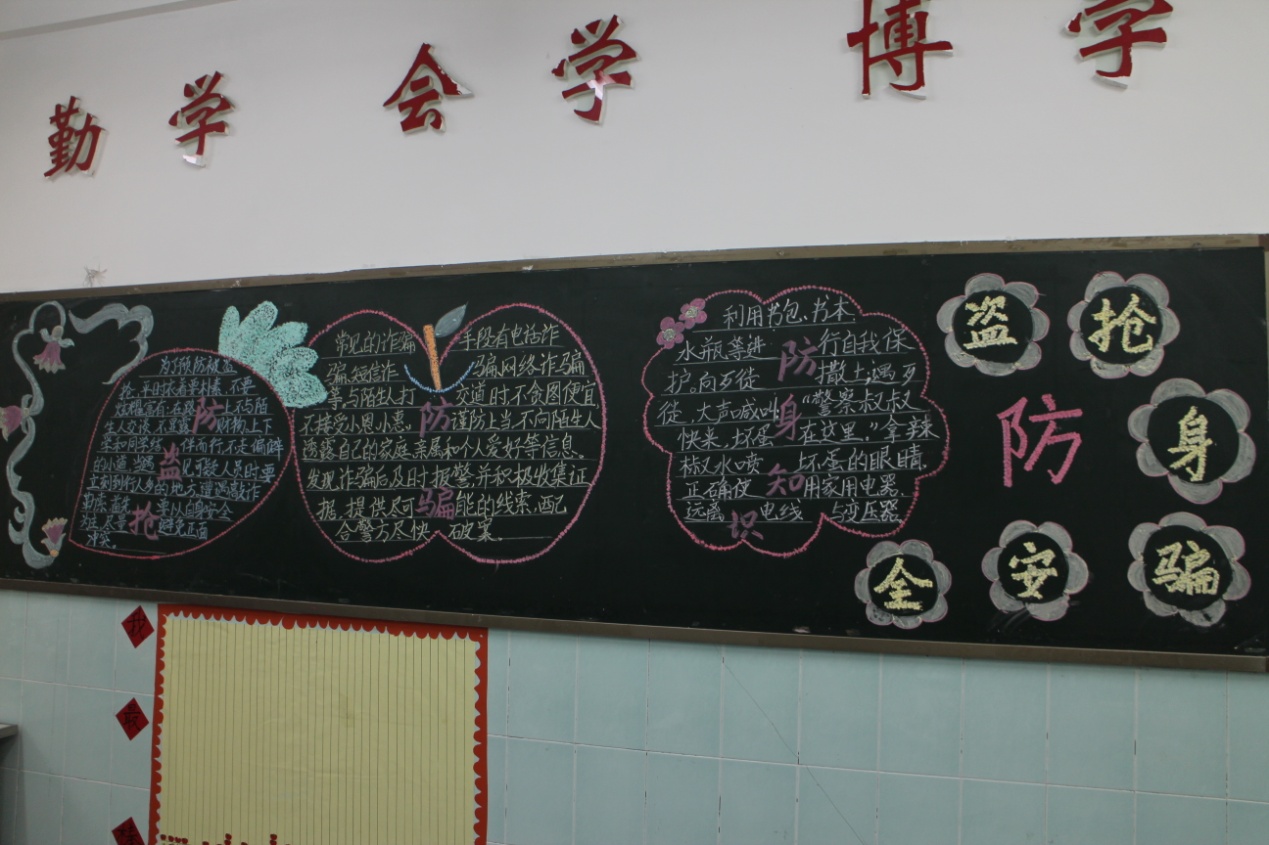 勤 学 会 学 博 学
为了预防被盗
抢,平时衣着要朴素,不要
炫耀富有;在路 上不与陌
生人交谈,不要露 财物;上下
学和同学结 伴而行,不走偏僻
的小道,当遇 见可疑人员时要
立刻到行人多的地方,遭遇敲诈
勒索 要以自身安全
避免正面
冲突。
防
盗
抢
常见的诈骗 手段有电话诈
骗、短信诈 骗网络诈骗
等与陌生人打 交道时不贪图便宜,
不接受小恩小惠。 谨防上当不向陌生人
透露自己的家庭、亲属和个人爱好等信息。
发现诈骗后及时报警并积极收集证
据,提供尽可 能的线索,配
合警方尽快 破案。
防
骗
利用书包、书本
水瓶等进 行自我保
护,向歹徒 撒土;遇歹
徒,大声喊叫 “警察叔叔
快来,坏蛋 在这里。”拿辣
椒水喷 坏蛋的眼睛
正确使 用家用电器
远离 电线 与变压器
防
身
知
识
盗
抢
防
身
全
安
骗
我
最